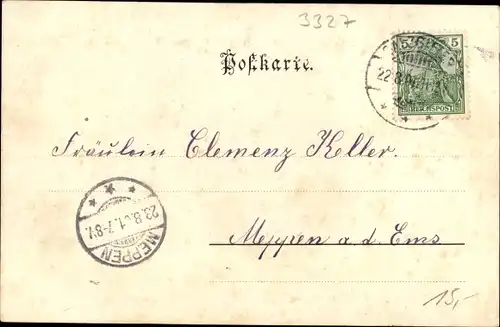 3327
Postkarte.
5
REICHSPOST
22.8.
Fräulein Clemenz Keller.
Meppen a. d. Ems
23.8.01.7-8V.
MEPPEN
15,-